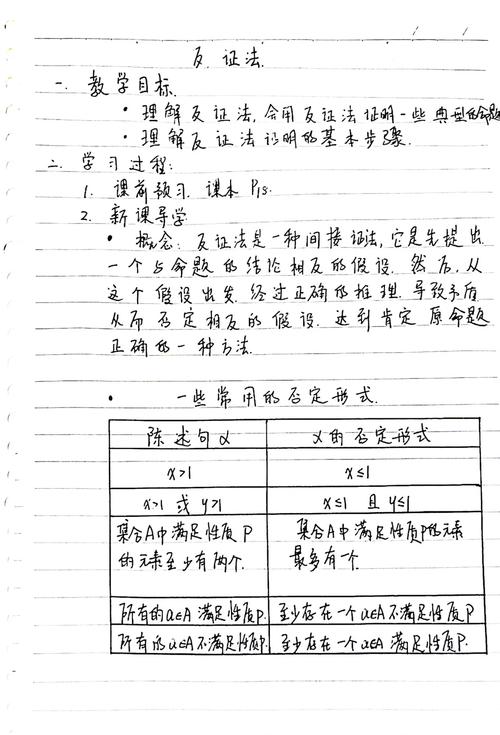 反证法.
一. 教学目标.
· 理解反证法,会用反证法证明一些典型的命题
· 理解反证法证明的基本步骤.
二. 学习过程:
1. 课前预习. 课本 P18.
2. 新课导学
· 概念: 反证法是一种间接证法,它是先提出
一个与命题的结论相反的假设. 然后,从
这个假设出发. 经过正确的推理. 导致矛盾
从而否定相反的假设. 达到肯定原命题
正确的一种方法.
· 一些常用的否定形式.
陈述句α α的否定形式
x>1 x≤1
x>1 或 y>1 x≤1 且 y≤1
集合A中满足性质P 集合A中满足性质P的元素
的元素至少有两个. 最多有一个.
所有的a∈A满足性质P. 至少存在一个a∈A不满足性质P
所有的a∈A不满足性质P. 至少存在一个a∈A 满足性质P.